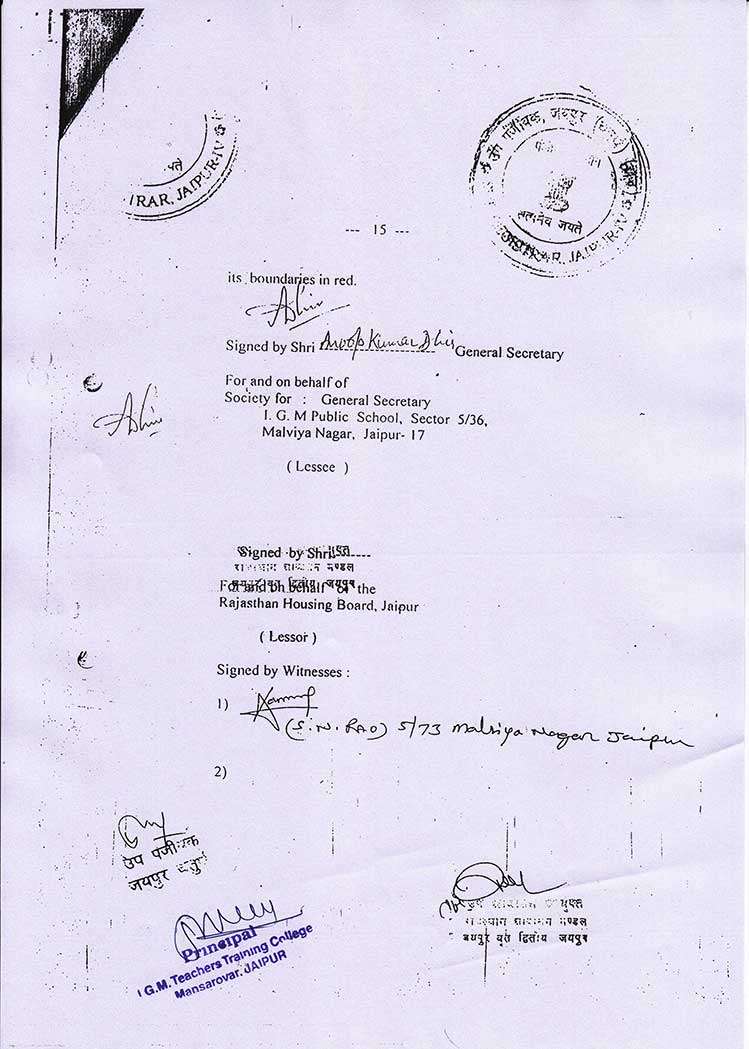 पते
IRAR, JAIPUR-IV
पंजीयक, जयपुर
सत्यमेव जयते
JAIPUR-IV
--- 15 ---
its boundaries in red.
Signed by Shri Anoop Kumar Dhir General Secretary
For and on behalf of
Society for : General Secretary
I. G. M Public School, Sector 5/36,
Malviya Nagar, Jaipur- 17
( Lessee )
Signed by Shri
मण्डल
द्वितीय जयपुर
For and on behalf of the
Rajasthan Housing Board, Jaipur
( Lessor )
Signed by Witnesses :
1)
(S. N. RAO) 5/73 Malviya Nagar Jaipur
2)
उप पंजीयक
जयपुर
Principal
I G.M. Teachers Training College
Mansarovar, JAIPUR
उप आवासन
आवासन मण्डल
जयपुर वृत द्वितीय जयपुर